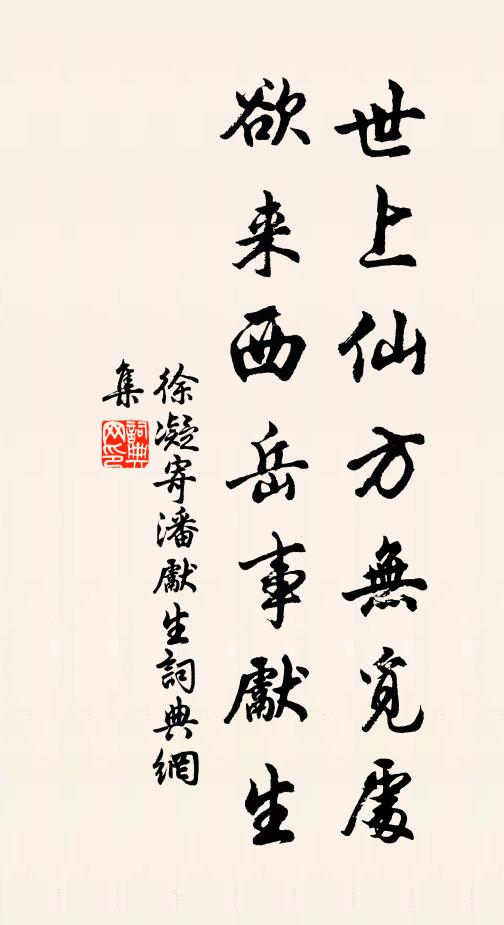 世上仙方無覓處
欲来西岳事獻生
徐凝寄潘獻生詞典網
集
詞典网印